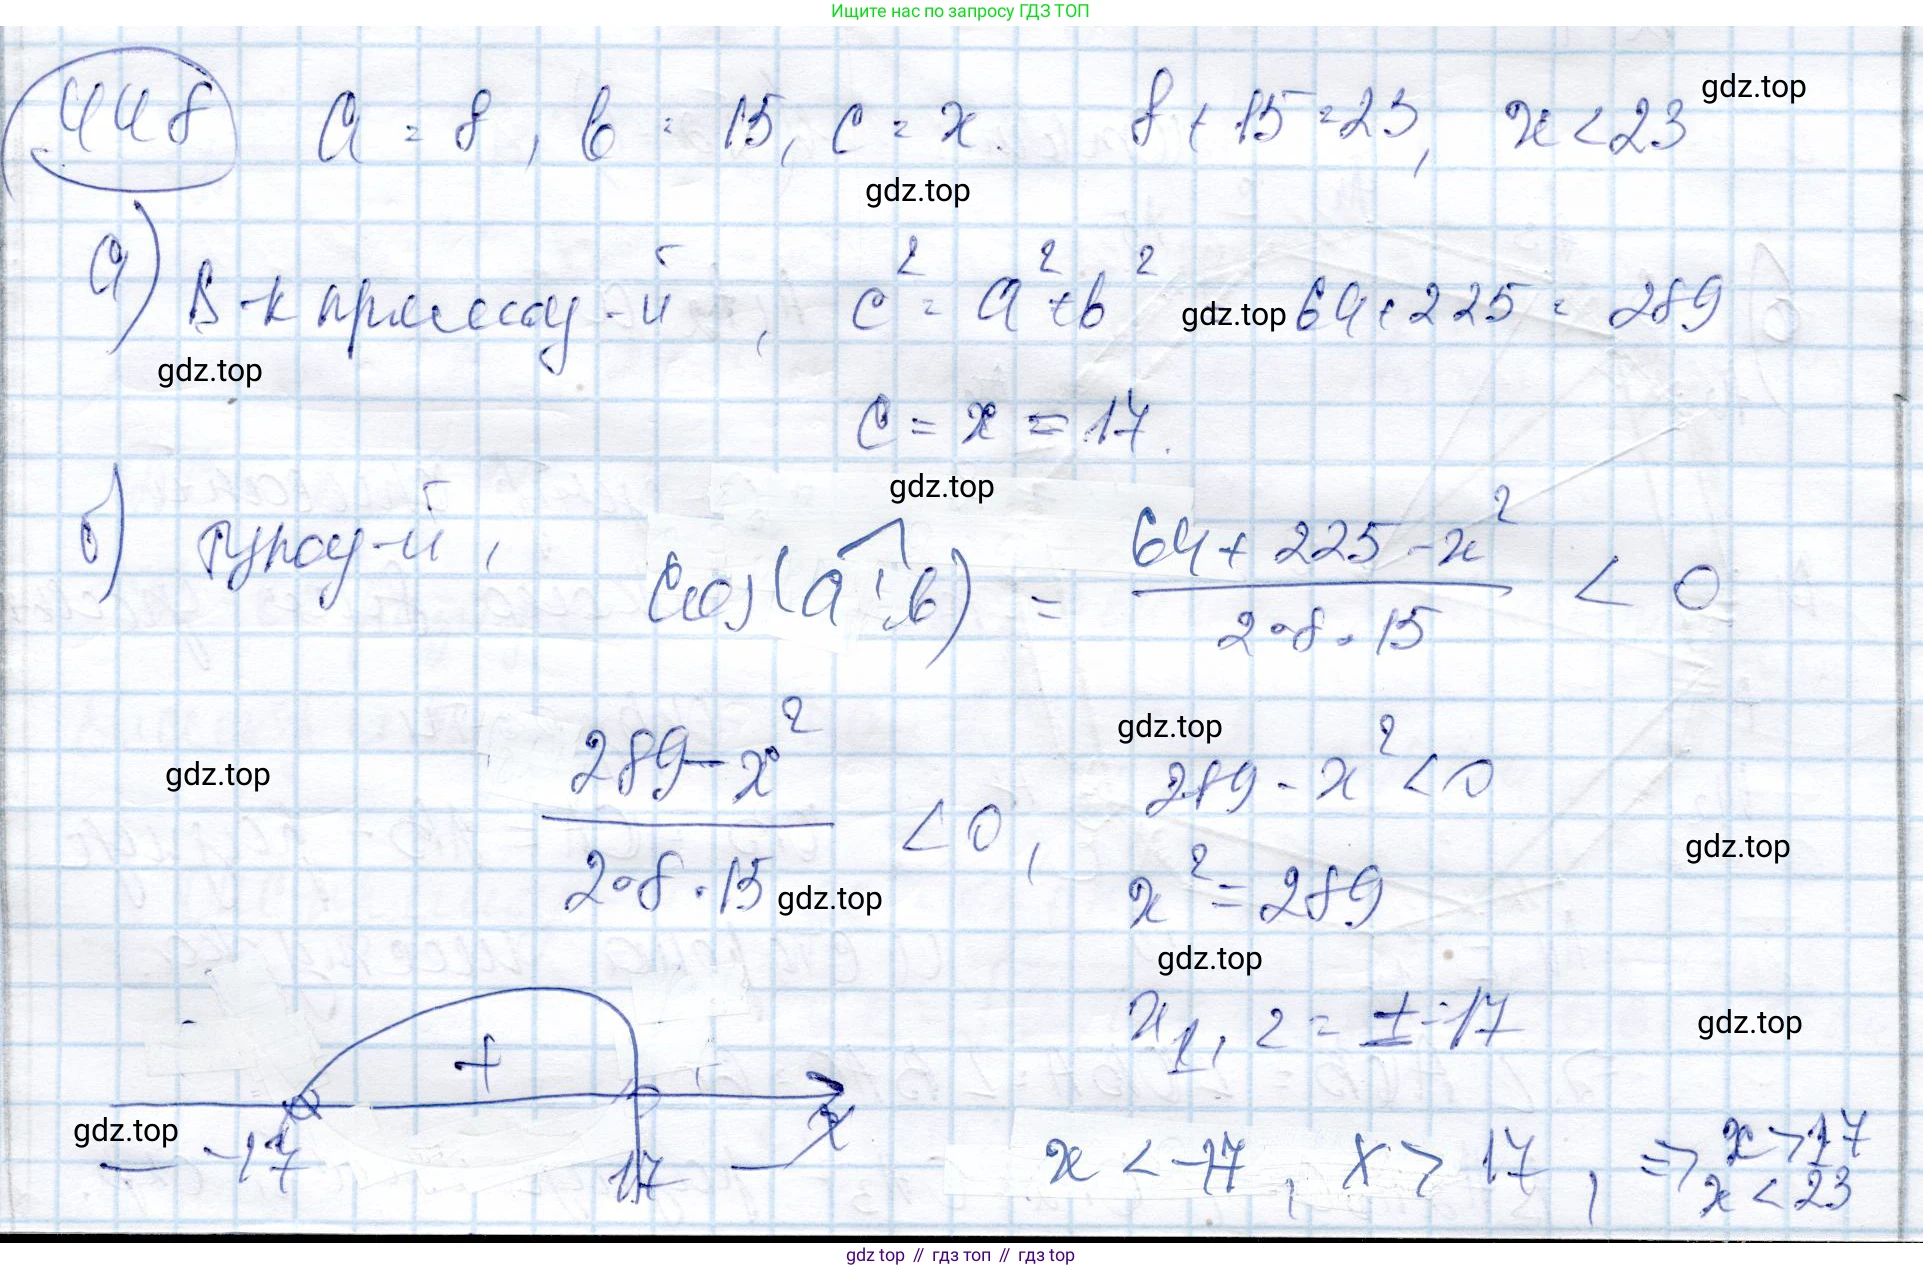 Ищите нас по запросу ГДЗ ТОП
448 a = 8, b = 15, c = x. 8 + 15 = 23, x < 23 gdz.top
gdz.top
а) В-к прямоу-й, c² = a² + b² gdz.top 64 + 225 = 289
gdz.top
c = x = 17.
gdz.top
б) тупоу-й, cos(a;b) = (64 + 225 - x²)/(2·8·15) < 0
gdz.top
gdz.top
(289 - x²)/(2·8·15) < 0, 289 - x² < 0
gdz.top
gdz.top
x² = 289
gdz.top
x1,2 = ± 17 gdz.top
+
gdz.top
x
— -17 17 — x < -17, x > 17, => x > 17
x < 23
gdz top // гдз топ // гдз top